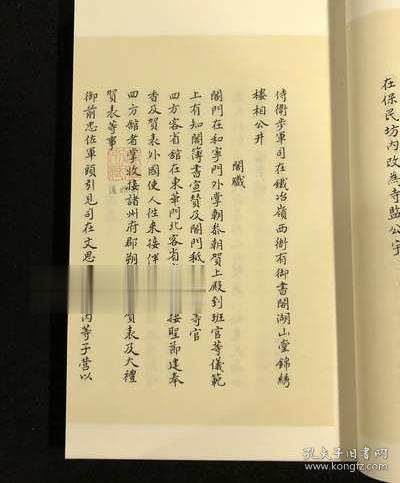 在保民坊內改為寺監公字
侍衛步軍司在鐵冶嶺西衙有御書閣湖山堂錦綉
樓相公井
閤職
閤門在和寧門外掌朝叅朝賀上殿到班官等儀範
上有知閤簿書宣賛及閤門祗 等官
四方客省館在東華門北客省 接聖節建奉
香及賀表外國使人徃來接伴
四方館者掌收接諸州府郡朔 賀表及大禮
賀表等事
御前忠佐軍頭引見司在文思 內等子營以
孔夫子旧书网
https://www.kongfz.com/